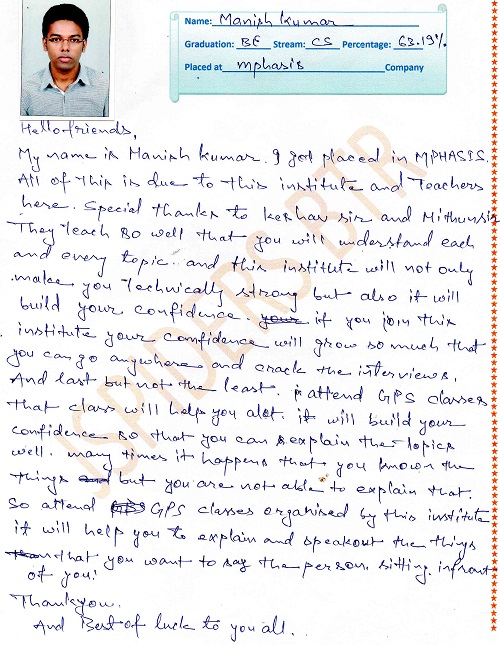 Name: Manish kumar
Graduation: BE Stream: CS Percentage: 63.19%
Placed at mphasis Company
Hello friends,
My name is Manish kumar. I got placed in MPHASIS.
All of this is due to this institute and Teachers
here. Special thanks to keshav sir and Mithunsir
They teach so well that you will understand each
and every topic. and this institute will not only
make you technically strong but also it will
build your confidence. your if you join this
institute your confidence will grow so much that
you can go anywhere and crack the interviews.
And last but not the least. attend GPS classes
that class will help you alot. it will build your
confidence so that you can explain the topics
well. many times it happens that you known the
things and but you are not able to explain that.
So attend GPS classes organised by this institute
it will help you to explain and speakout the things
that you want to say the person sitting infront
of you!
Thankyou.
And Best of luck to you all..
JSPIDERS BTR